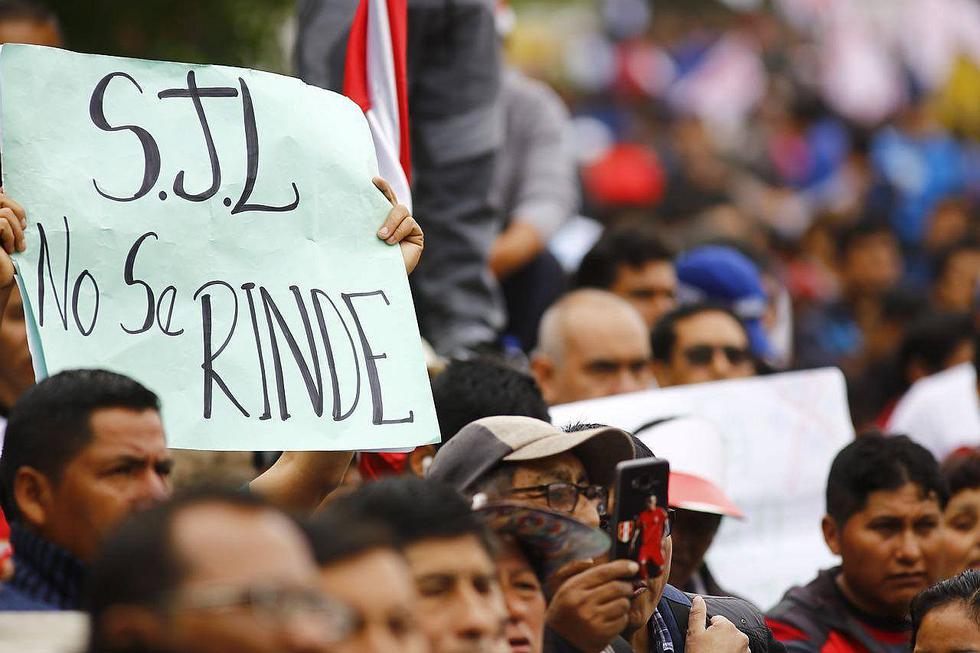 S.J.L
No Se
RINDE